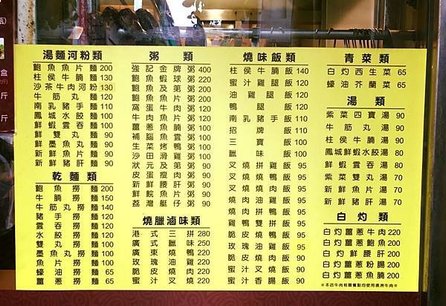 湯麵河粉類
鮑魚魚片麵 200
柱侯牛腩麵 130
沙茶牛肉河粉 130
牛筋丸麵
南乳豬手麵 110
鳳城水餃麵 100
鮮蝦雲吞麵 100
鮮雙丸麵 90
新鮮墨魚丸麵 90
新鮮魚片麵 90
新鮮豬肝麵 90
乾麵類
鮑魚撈麵 200
牛腩撈麵 150
牛筋撈麵
豬手撈麵 120
雲吞撈麵
水餃撈麵
雙丸撈麵
墨魚丸撈麵
魚片撈麵
蠔油撈麵 65
粥類
強記金牌粥 400
鮑魚蝦球粥 220
鮑魚及第粥 200
鮑魚魚片粥 200
窩蛋牛肉粥 100
牛肉魚片粥 100
薑葱魚腩粥 100
補腦魚雲粥 100
生菜烤鴨粥 100
沙田滑雞粥 100
狀元及第粥 90
皮蛋瘦肉粥 90
新鮮腰肝粥 90
新鮮魚片粥 90
荔灣艇仔粥 90
燒臘滷味類
港式三拼 280
廣式臘味 250
廣東燒鴨 220
玫瑰油雞 220
脆皮燒肉 220
蜜汁叉燒 220
燒味飯類
柱侯牛腩飯 140
蜜汁雞腿飯 120
油雞腿飯 120
鴨腿飯 120
南乳豬手飯 110
招牌飯 110
三寶飯 100
臘味飯 100
叉燒燒鴨飯 95
叉燒燒肉飯 95
叉燒油雞飯 95
燒肉拼鴨飯 95
燒肉拼雞飯 95
鴨拼雞飯 95
玫瑰油雞飯 90
脆皮燒鴨飯 90
脆皮燒肉飯 90
蜜汁叉燒飯 90
青菜類
白灼西生菜 65
蠔油芥蘭菜 65
湯類
紫菜四寶湯 90
牛筋丸湯 90
柱侯牛腩湯 90
鳳城鮮蝦水餃 80
鮮蝦雲吞湯 80
紫菜雙丸湯 70
新鮮魚片湯 70
新鮮豬肝湯 70
白灼類
白灼薑葱牛肉 220
白灼薑葱鮑魚 220
白灼鮮腰肝 220
白灼薑葱粉腸 200
白灼薑葱魚腩 200